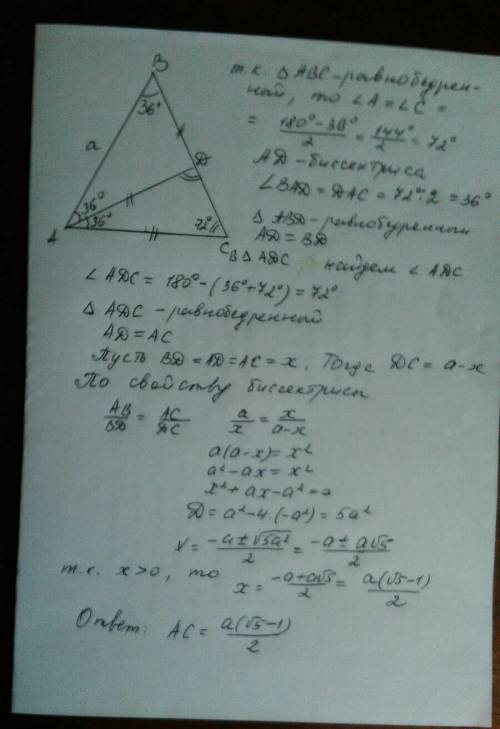 B
36°
a
D
36°
36°
72°
A
C
т.к. △ABC - равнобедрен-
ный, то ∠A = ∠C =
= (180° - 36°)/2 = 144°/2 = 72°
AD - биссектриса
∠BAD = DAC = 72°:2 = 36°
△ABD - равнобедренный
AD = BD
В △ADC найдем ∠ADC
∠ADC = 180° - (36° + 72°) = 72°
△ADC - равнобедренный
AD = AC
Пусть BD = AD = AC = x. Тогда DC = a - x
По свойству биссектрисы
AB/BD = AC/DC a/x = x/(a-x)
a(a-x) = x²
a² - ax = x²
x² + ax - a² = 0
D = a² - 4·(-a²) = 5a²
x = (-a ± √5a²)/2 = (-a ± a√5)/2
т.к. x > 0, то x = (-a + a√5)/2 = a(√5-1)/2
Ответ: AC = a(√5-1)/2